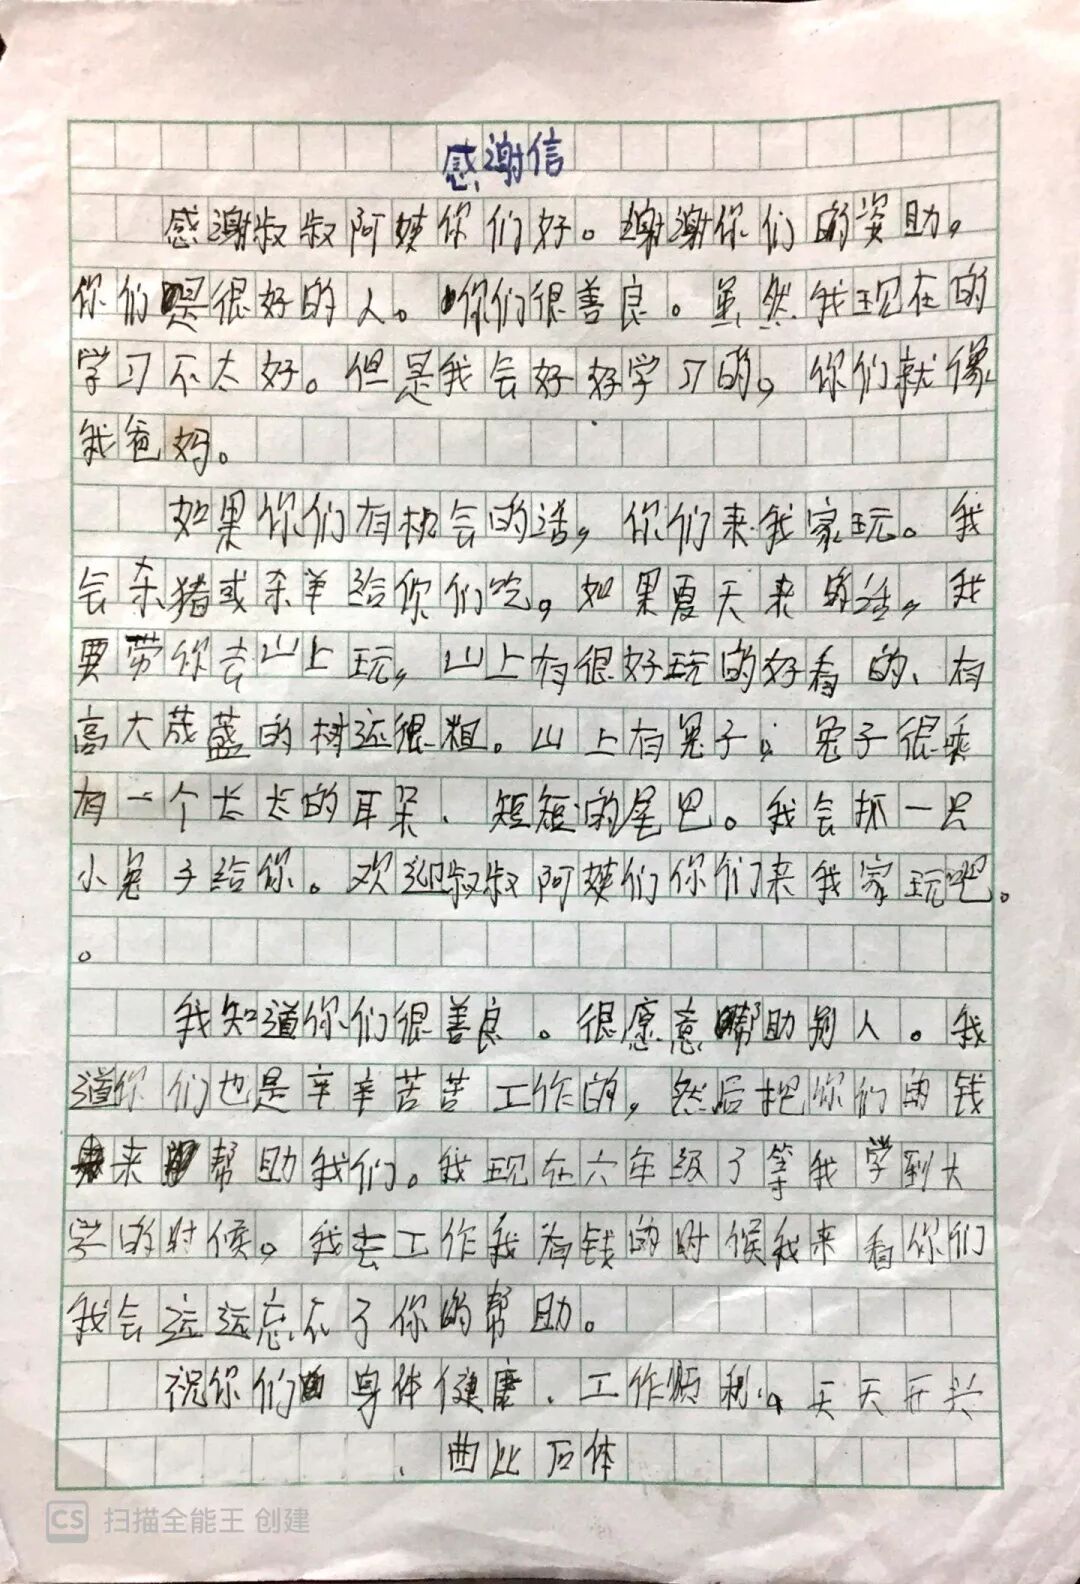 感谢信
感谢叔叔阿姨你们好。谢谢你们的姿助，
你们是很好的人。你们很善良。虽然我现在的
学习不太好。但是我会好好学习的，你们就像
我爸妈。
如果你们有机会的话，你们来我家玩。我
会杀猪或杀羊给你们吃，如果夏天来的话，我
要带你去山上玩，山上有很好玩的好看的、有
高大茂盛的树还很粗。山上有兔子，兔子很乖
有一个长长的耳朵、短短的尾巴。我会抓一只
小兔子给你。欢迎叔叔阿姨们你们来我家玩吧。
。
我知道你们很善良。很愿意帮助别人。我
道你们也是辛辛苦苦工作的，然后把你们的钱
来帮助我们。我现在六年级了等我学到大
学的时候。我去工作我有钱的时候我来看你们
我会远远忘不了你的帮助。
祝你们身体健康、工作顺利，天天开兴
曲比后体
CS 扫描全能王 创建